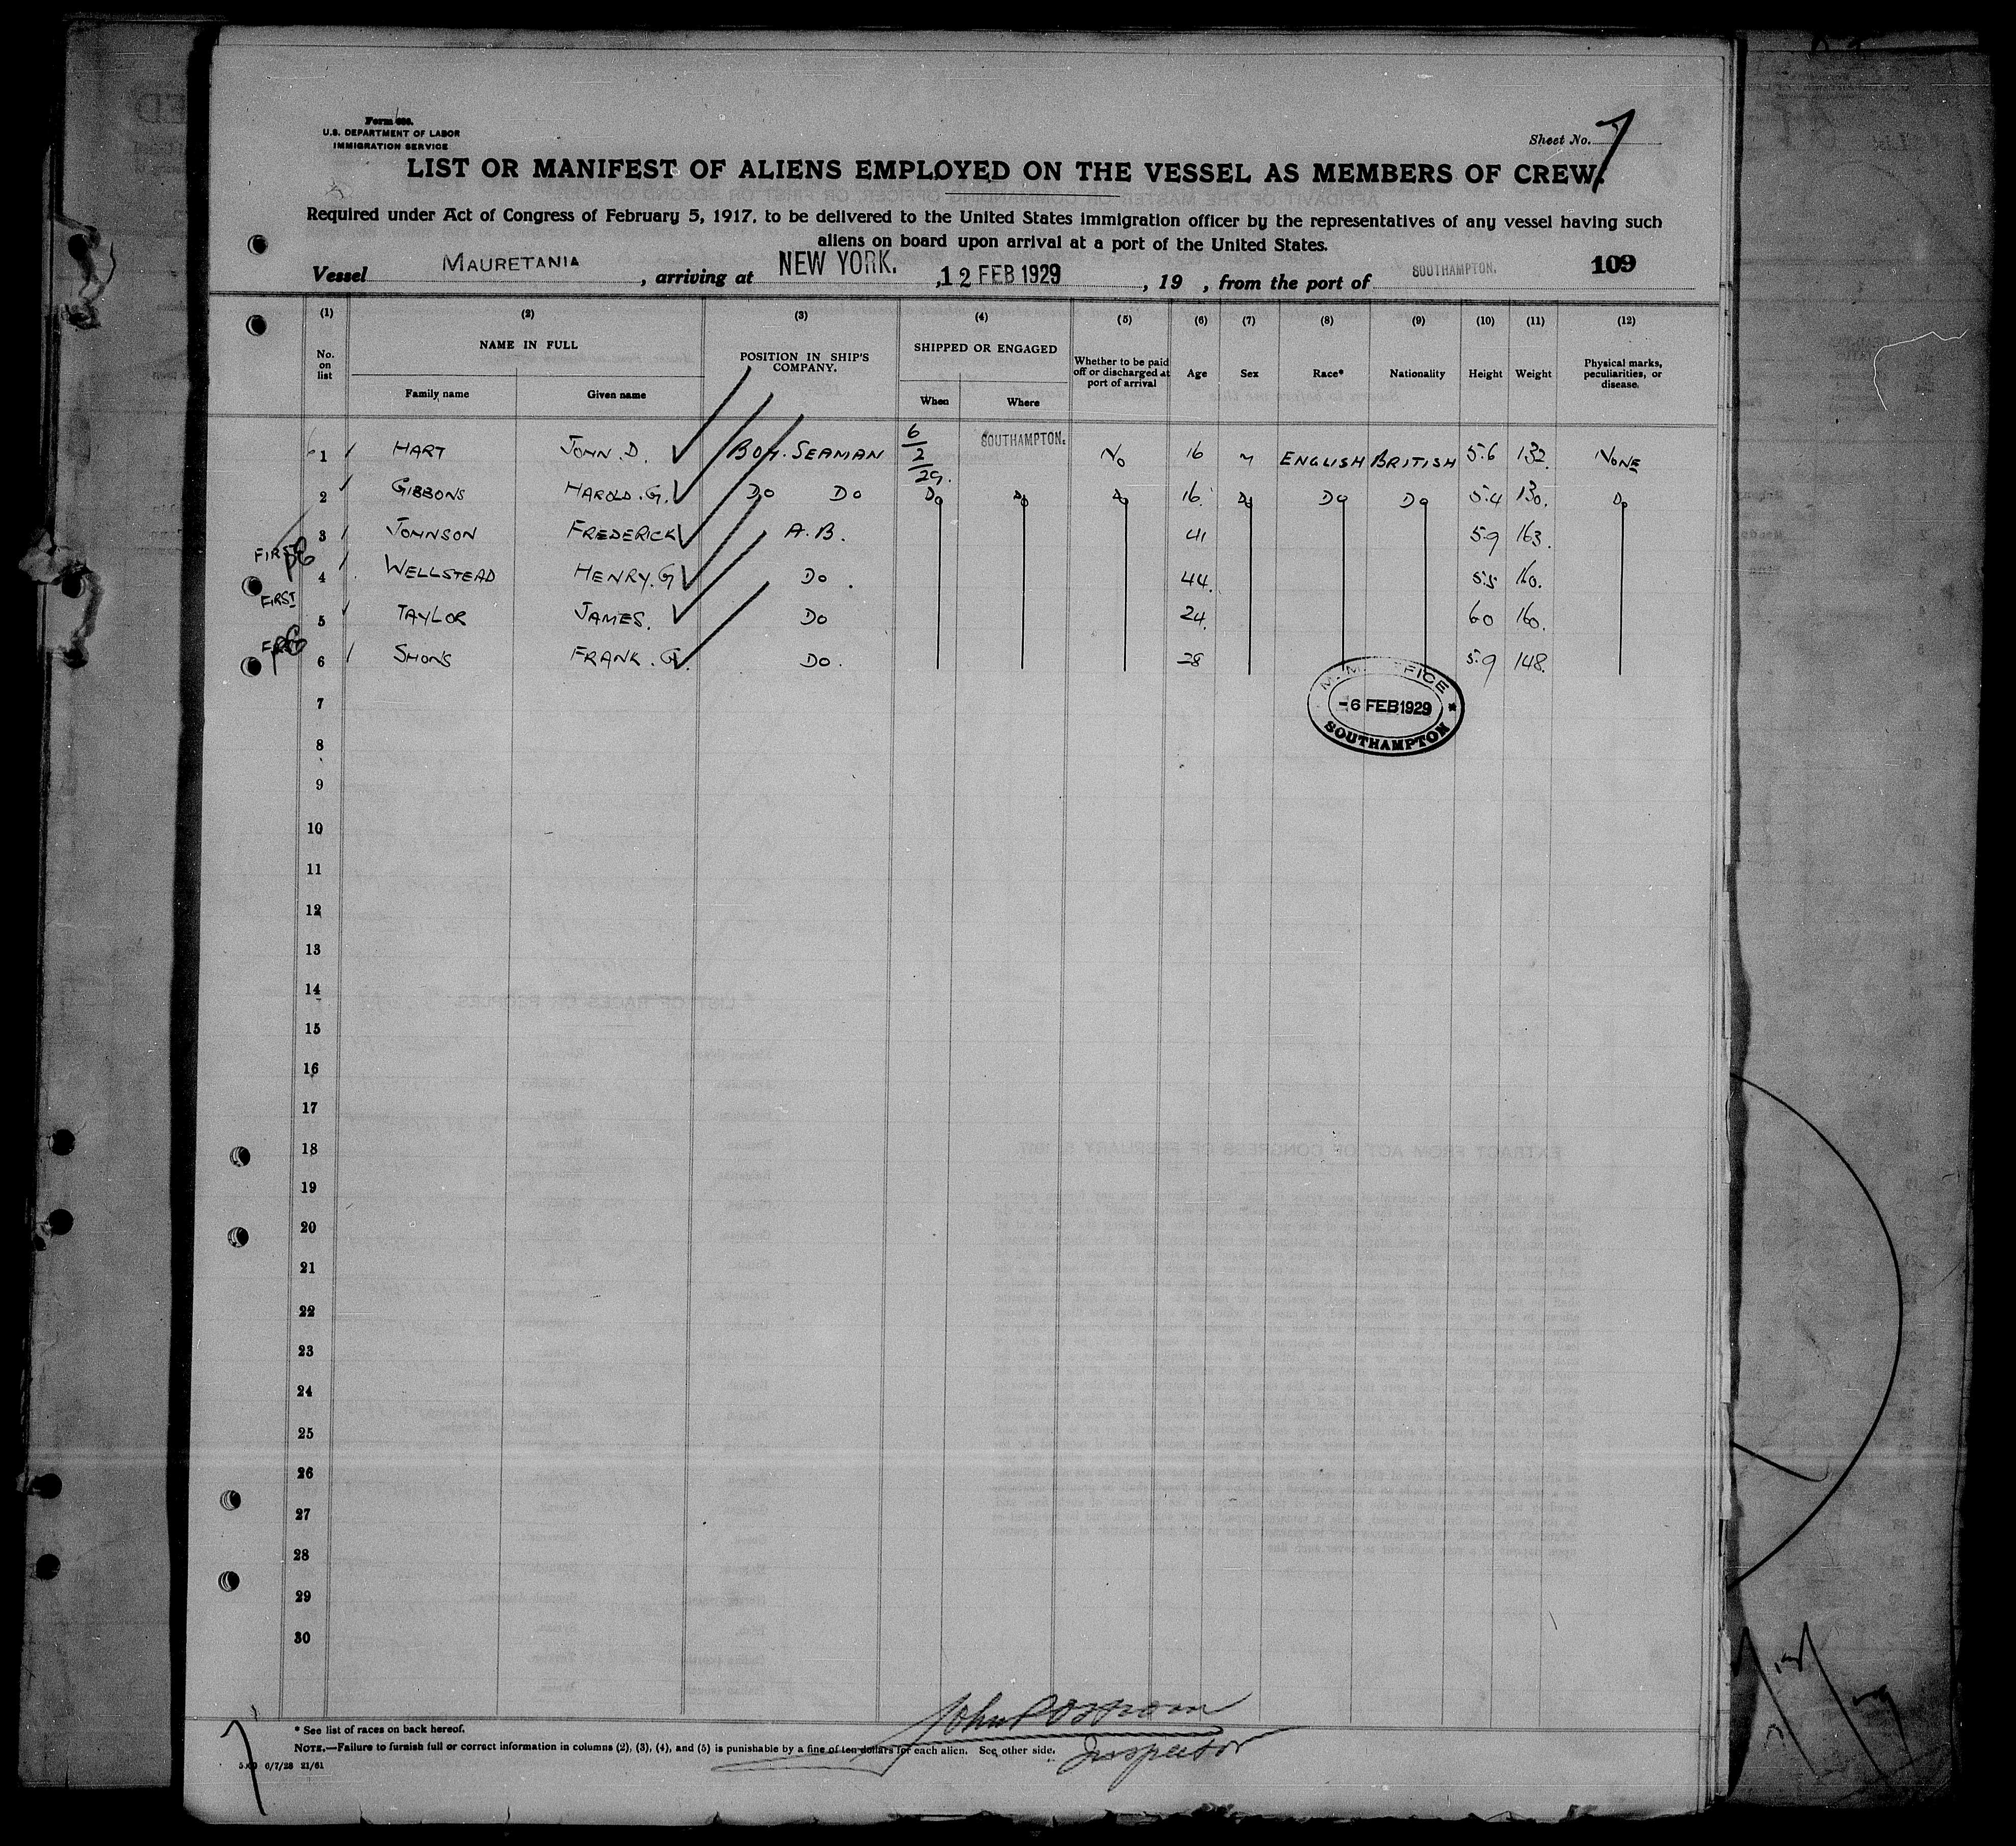 Form 680.
U.S. DEPARTMENT OF LABOR
IMMIGRATION SERVICE
Sheet No. 7
LIST OR MANIFEST OF ALIENS EMPLOYED ON THE VESSEL AS MEMBERS OF CREW.
Required under Act of Congress of February 5, 1917, to be delivered to the United States immigration officer by the representatives of any vessel having such
aliens on board upon arrival at a port of the United States.
109
Vessel MAURETANIA, arriving at NEW YORK., 12 FEB 1929, 19 , from the port of SOUTHAMPTON.
(1) (2) (3) (4) (5) (6) (7) (8) (9) (10) (11) (12)
No. on list NAME IN FULL POSITION IN SHIP'S COMPANY. SHIPPED OR ENGAGED Whether to be paid off or discharged at port of arrival Age Sex Race* Nationality Height Weight Physical marks, peculiarities, or disease.
Family name Given name When Where
1 HART JOHN. D. BOY. SEAMAN 6/2/29. SOUTHAMPTON. No 16 M ENGLISH BRITISH 5.6 132. NONE
2 GIBBONS HAROLD. G. Do Do Do Do Do 16 Do Do Do 5.4 130. Do
3 JOHNSON FREDERICK A.B. 41 5.9 163.
FIRST
4 WELLSTEAD HENRY. G Do. 44. 5.5 160.
FIRST
5 TAYLOR JAMES. Do 24. 6.0 160.
6 SHONS FRANK. G. Do. 28 5.9 148.
M.M. OFFICE
-6 FEB 1929
SOUTHAMPTON
7
8
9
10
11
12
13
14
15
16
17
18
19
20
21
22
23
24
25
26
27
28
29
30
Inspector
* See list of races on back hereof.
NOTE.—Failure to furnish full or correct information in columns (2), (3), (4), and (5) is punishable by a fine of ten dollars for each alien. See other side.
6/7/28 21/61
7